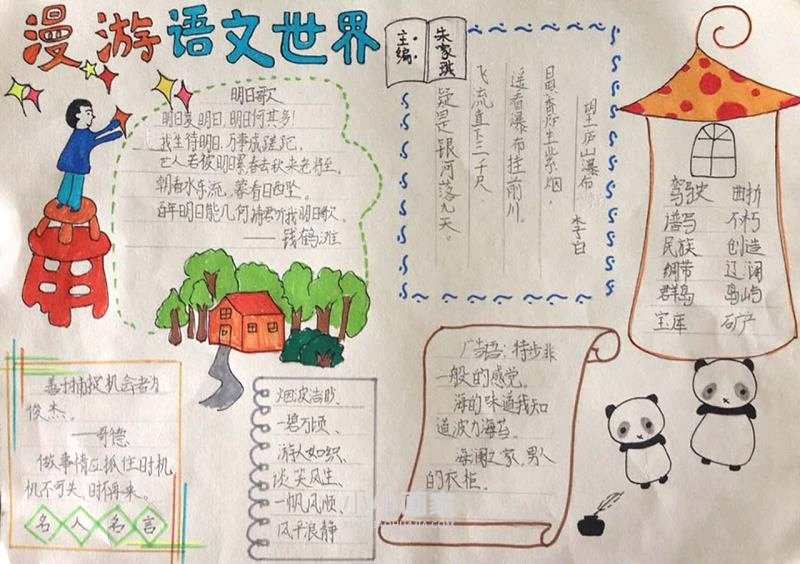 漫游语文世界
主编:
朱家琪
明日歌
明日复明日,明日何其多!
我生待明日,万事成蹉跎。
世人若被明日累春去秋来老将至。
朝看水东流,暮看日西坠。
百年明日能几何请君听我明日歌。
——钱鹤滩
望庐山瀑布
李白
日照香炉生紫烟,
遥看瀑布挂前川。
飞流直下三千尺,
疑是银河落九天。
驾驶 曲折
谱写 不朽
民族 创造
绷带 辽阔
群岛 岛屿
宝库 矿产
善于捕捉机会者为
俊杰。
——哥德
做事情应抓住时机
机不可失,时不再来。
名人名言
烟波浩渺、
一碧万顷、
游人如织、
谈笑风生、
一帆风顺、
风平浪静
广告语:特步非
一般的感觉。
海的味道我知
道波力海苔。
海澜之家,男人
的衣柜。
小小画家
XIAOXIAOHUAJIA.COM